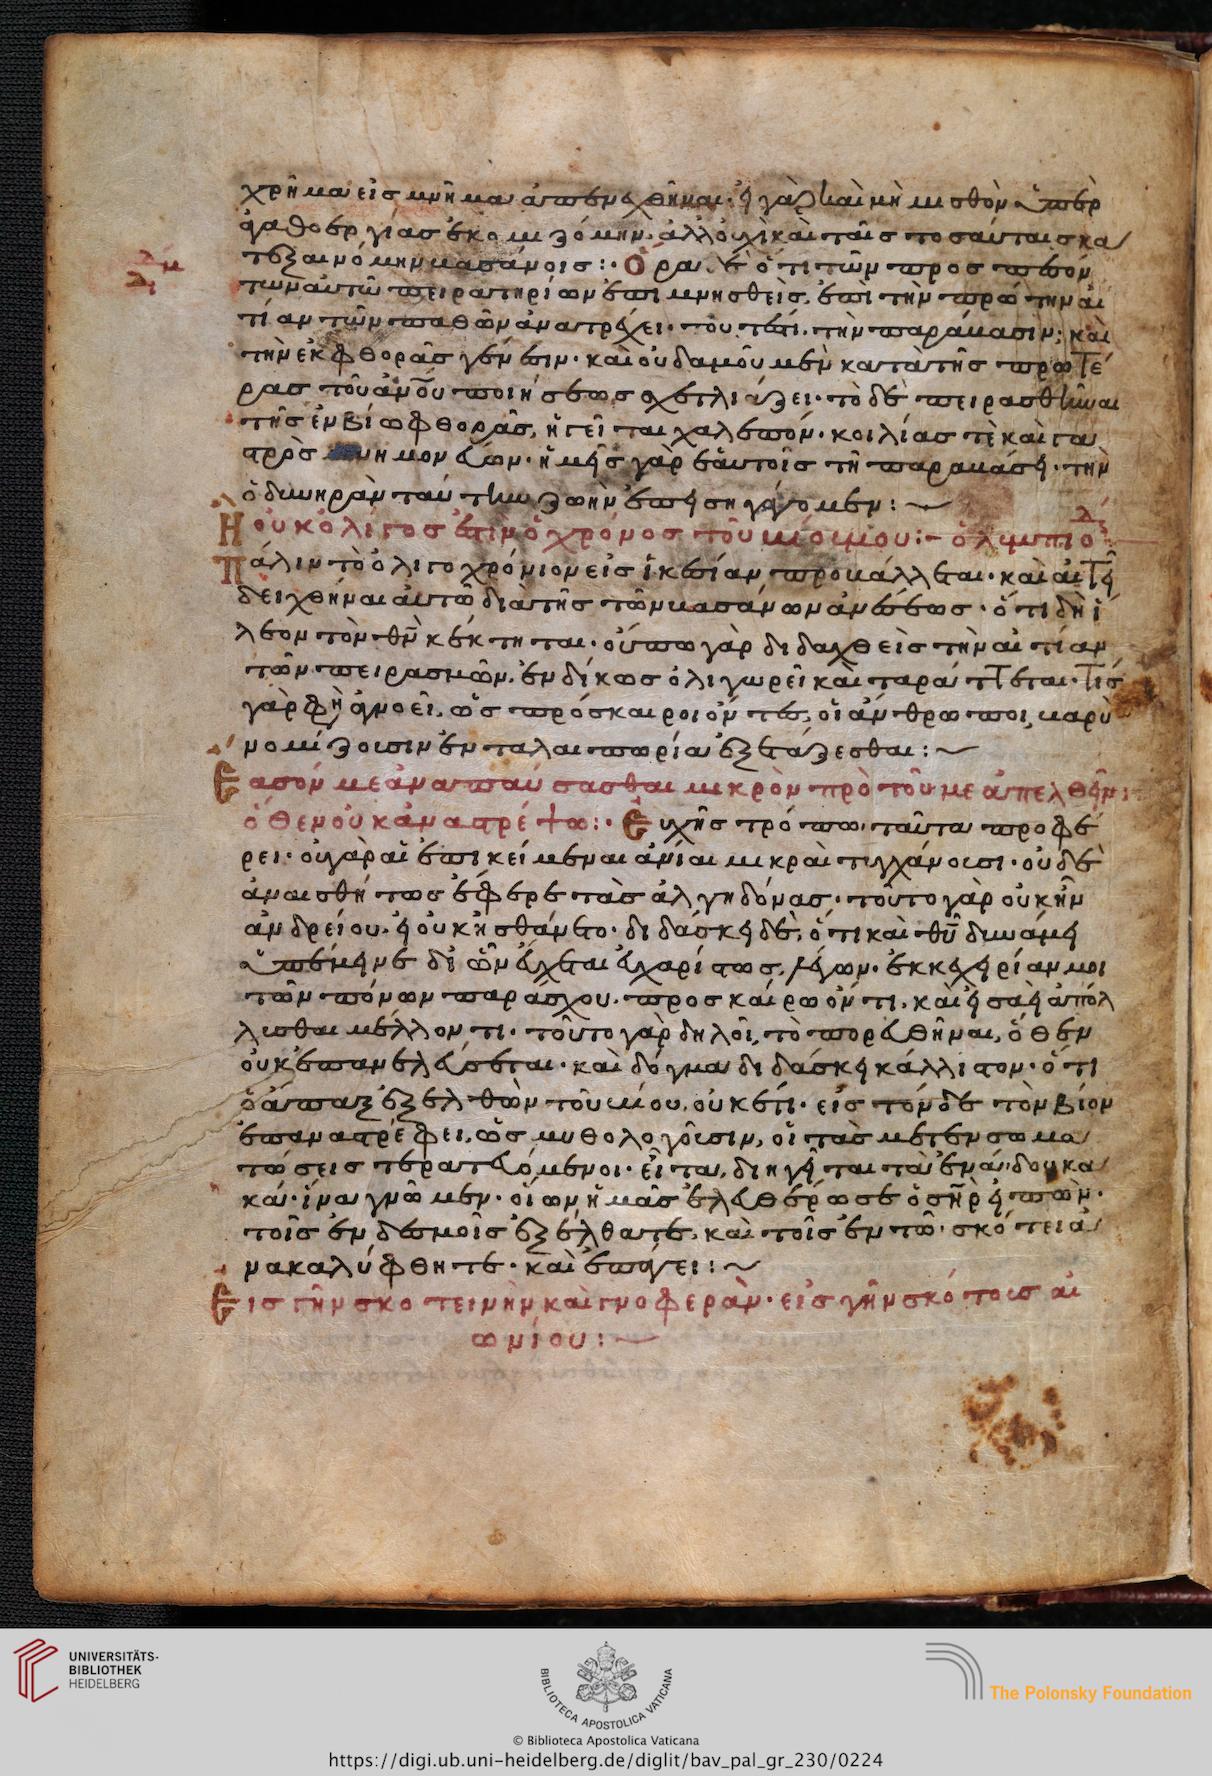 χρῆμα εἰς μνῆμα ἀπενεχθῆναι· εἰ γὰρ καὶ μὴ μισθὸν ὑπὲρ
ἀγαθοεργίας ἐκομιζόμην· ἀλλ' οὐχὶ καὶ ταῖς τοσαύταις κα
τεξαινόμην βασάνοις:· Ὅρα δὲ ὅτι τῶν προσπεσόν
των αὐτῶ πειρατηρίων ἐπιμνησθεὶς, ἐπὶ τὴν πρώτην αἰ
τίαν τῶν παθῶν ἀνατρέχει· τουτέστι, τὴν παράβασιν; καὶ
τὴν ἐκ φθορᾶς γένεσιν· καὶ οὐδαμοῦ μὲν κατὰ τῆς προτέ
ρας τοῦ ἀνοῦ ποιήσεως σχετλιάζει· τὸ δὲ πειρασθῆναι
τῆς ἐν βίω φθορᾶς, ἡγεῖται χαλεπόν· κοιλίας τὲ καὶ γα
στρὸς μνημονεύων· ἡμεῖς γὰρ ἑαυτοῖς τῆ παραβάσει· τὴν
ὀδυνηρὰν ταύτην ζωὴν ἐπεισηγάγομεν:
Ἢ οὐκ ὀλίγος ἐστὶν ὁ χρόνος τοῦ βίου μου:– ὀλυμπιο
Πάλιν τὸ ὀλιγοχρόνιον εἰς ἱκεσίαν προβάλλεται· καὶ αἰτεῖ
δειχθῆναι αὐτῶ διὰ τῆς τῶν βασάνων ἀνέσεως· ὅτι δὴ ἵ
λεων τὸν θν κέκτηται· οὔπω γὰρ διδαχθεὶς τὴν αἰτίαν
τῶν πειρασμῶν, ἐνδίκως ὀλιγωρεῖ καὶ ταράττεται· τίς
γὰρ φησὶν ἀγνοεῖ, ὡς πρόσκαιροι ὄντες, οἱ ἄνθρωποι, βαρὺ
νομίζουσιν ἐν ταλαιπωρία ἐξετάζεσθαι:
Ἔασόν με ἀναπαύσασθαι μικρὸν πρὸ τοῦ με ἀπελθεῖν:
ὅθεν οὐκ ἀναστρέψω:· Εὐχῆς τρόπω, ταῦτα προφέ
ρει· οὐ γὰρ αἱ ἐπικείμεναι ἀνίαι μικραὶ τυγχάνουσι· οὐδὲ
ἀναισθήτως ἔφερε τὰς ἀλγηδόνας· τοῦτο γὰρ οὐκ ἦν
ἀνδρείου· εἰ οὐκ ἠσθάνετο· διδάσκει δὲ, ὅτι καὶ θυ δυνάμει
ὑπέμεινε δι' ὧν εὔχεται εὐχαρίστως, λέγων· ἐκεχειρίαν μοι
τῶν πόνων παράσχου· προσκαίρω ὄντι, καὶ εἰσαεὶ ἀπόλ
λυσθαι μέλλοντι· τοῦτο γὰρ δηλοῖ, τὸ πορευθῆναι, ὅθεν
οὐκ ἐπανελεύσεται· καὶ δόγμα διδάσκει κάλλιστον· ὅτι
ὁ ἅπαξ ἐξελθὼν τοῦ βίου, οὐκέτι· εἰς τόνδε τὸν βίον
ἐπαναστρέφει, ὡς μυθολογοῦσιν, οἱ τὰς μετενσωμα
τώσεις τερατευόμενοι· εἶτα, διηγεῖται τὰ ἐν ἅδου κα
κά· ἵνα γνῶμεν· οἵων ἡμᾶς ἐλευθέρωσε ὁ σηρ εἰπὼν·
τοῖς ἐν δεσμοῖς ἐξέλθατε, καὶ τοῖς ἐν τῶ σκότει ἀ
νακαλύφθητε· καὶ ἐπάγει:
Εἰς γῆν σκοτεινὴν καὶ γνοφερὰν· εἰς γῆν σκότους αἰ
ωνίου:
UNIVERSITÄTS-
BIBLIOTHEK
HEIDELBERG
BIBLIOTECA APOSTOLICA VATICANA
The Polonsky Foundation
© Biblioteca Apostolica Vaticana
https://digi.ub.uni-heidelberg.de/diglit/bav_pal_gr_230/0224